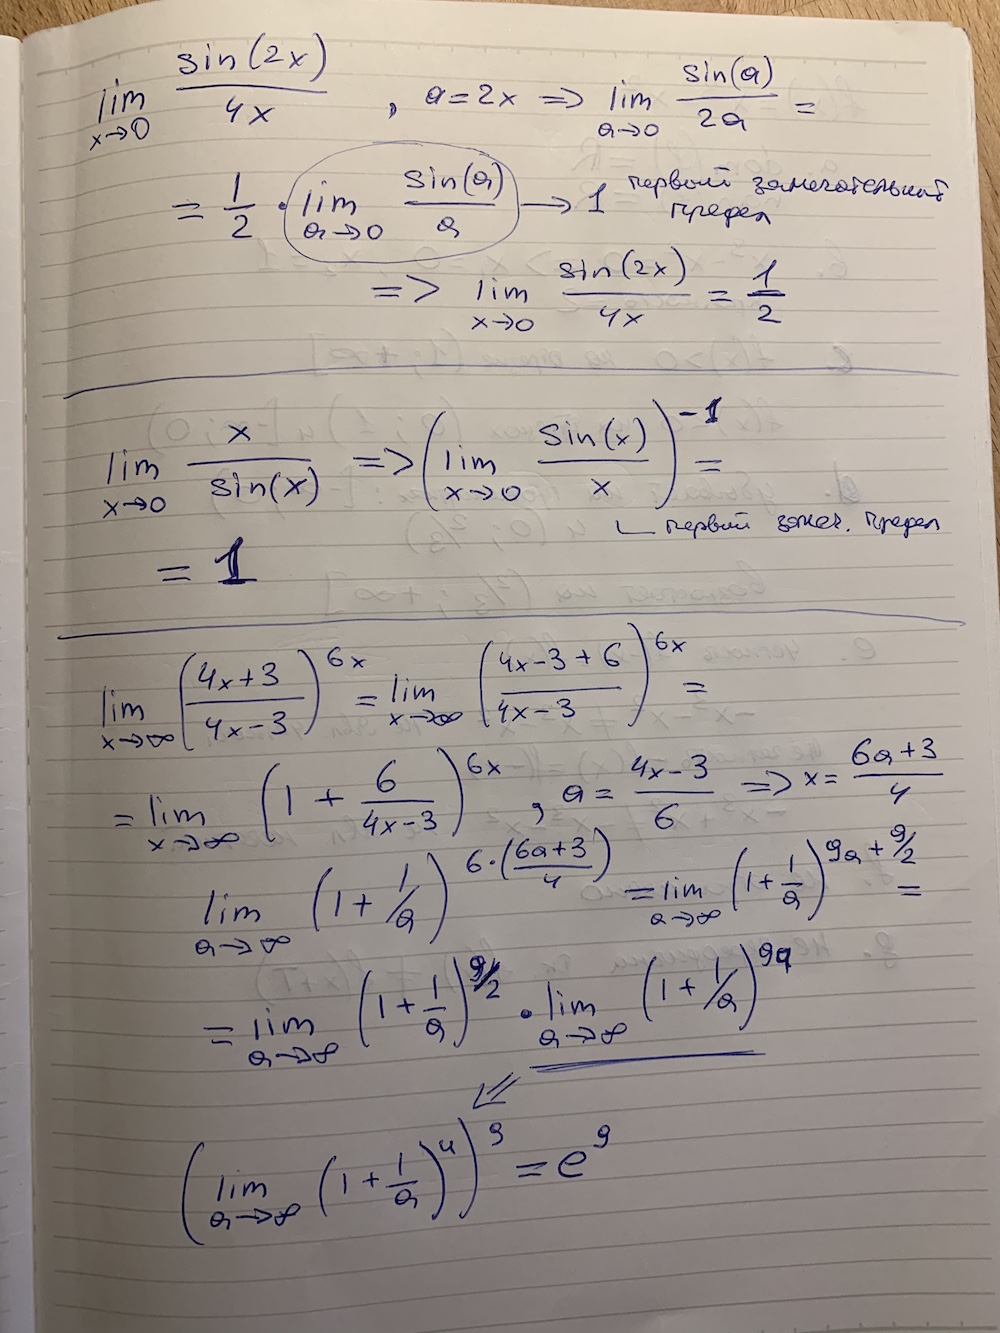 lim x→0 sin(2x)/4x , a=2x => lim a→0 sin(a)/2a =
= 1/2 · lim a→0 sin(a)/a → 1 первый замечательный предел
=> lim x→0 sin(2x)/4x = 1/2
lim x→0 x/sin(x) => (lim x→0 sin(x)/x)^-1 =
первый замеч. предел
= 1
lim x→∞ ((4x+3)/(4x-3))^6x = lim x→∞ ((4x-3+6)/(4x-3))^6x =
= lim x→∞ (1 + 6/(4x-3))^6x , a = (4x-3)/6 => x = (6a+3)/4
lim a→∞ (1 + 1/a)^6·((6a+3)/4) = lim a→∞ (1+1/a)^9a+9/2 =
= lim a→∞ (1+1/a)^9/2 · lim a→∞ (1+1/a)^9a
(lim a→∞ (1+1/a)^a)^9 = e^9